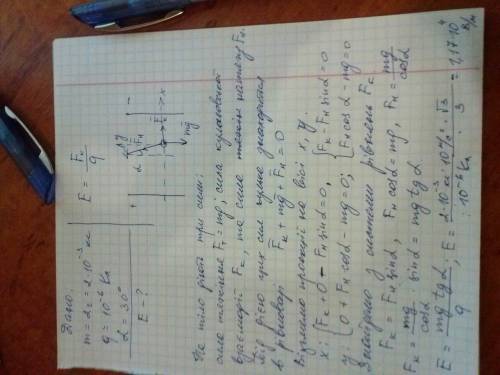 Дано:
m = 2г = 2·10⁻³ кг
q = 10⁻⁶ Кл
α = 30°
E - ?
E = Fк/q
+
-
y
Fн
α
Fк
x
mg
На тіло діють три сили:
сила тяжіння Fт = mg; сила кулонівської
взаємодії Fк, та сила натягу Fн.
Під дією цих сил куля знаходиться
в рівновазі Fк + mg + Fн = 0
Візьмемо проекції на вісі x, y.
x: { Fк + 0 - Fн sinα = 0, { Fк - Fн sinα = 0
y { 0 + Fн cosα - mg = 0; { Fн cosα - mg = 0
Знайдемо з системи рівнянь Fк
Fк = Fн sinα, Fн cosα = mg, Fн = mg/cosα
Fк = mg/cosα · sinα = mg tgα
E = mg tgα/q; E = 2·10⁻³кг·10 м/с²·√3 / 10⁻⁶ Кл · 3 = 1,17·10⁴ В/м